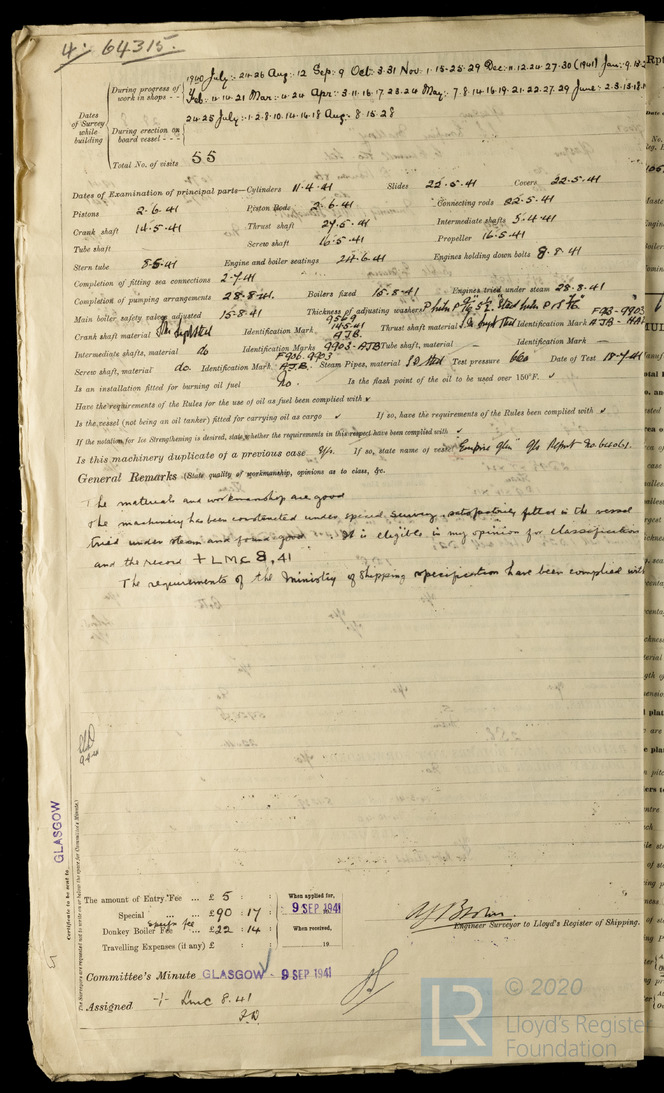 4. 64315.
Dates of Survey while building
During progress of work in shops - -
1940 July:- 24·26 Aug: 12 Sep: 9 Oct: 3·31 Nov: 1·15·25·29 Dec: 11·12·24·27·30 (1941) Jan: 9·13
Feb: 4·14·21 Mar: 4·24 Apr: 3·11·16·17·23·24 May: 7·8·14·16·19·21·22·27·29 June: 2·3·13·18
During erection on board vessel - - -
24·25 July: 1·2·8·10·14·16·18 Aug: 8·15·28
Total No. of visits 55
Dates of Examination of principal parts—Cylinders 11·4·41 Slides 22·5·41 Covers 22·5·41
Pistons 2·6·41 Piston Rods 2·6·41 Connecting rods 22·5·41
Crank shaft 14·5·41 Thrust shaft 27·5·41 Intermediate shafts 5·4·41
Tube shaft — Screw shaft 16·5·41 Propeller 16·5·41
Stern tube 8·5·41 Engine and boiler seatings 24·6·41 Engines holding down bolts 8·8·41
Completion of fitting sea connections 2·7·41
Completion of pumping arrangements 28·8·41. Boilers fixed 15·8·41 Engines tried under steam 28·8·41
Main boiler safety valves adjusted 15·8·41 Thickness of adjusting washers
Crank shaft material Identification Mark 9569 14·5·41 AJB. Thrust shaft material Identification Mark F903-9903 AJB
Intermediate shafts, material do Identification Marks 9903-AJB Tube shaft, material — Identification Mark —
Screw shaft, material do. Identification Mark F906-9903 AJB. Steam Pipes, material S.D. Steel Test pressure Date of Test 18·7·41
Is an installation fitted for burning oil fuel No. Is the flash point of the oil to be used over 150°F. ✓
Have the requirements of the Rules for the use of oil as fuel been complied with ✓
Is the vessel (not being an oil tanker) fitted for carrying oil as cargo ✓ If so, have the requirements of the Rules been complied with ✓
If the notation for Ice Strengthening is desired, state whether the requirements in this respect have been complied with ✓
Is this machinery duplicate of a previous case Yes. If so, state name of vessel "Empire Glen" Gls Report No.
General Remarks (State quality of workmanship, opinions as to class, &c.
The materials and workmanship are good
The machinery has been constructed under special survey, satisfactorily fitted in the vessel
tried under steam and found good. It is eligible in my opinion for classification
and the record + LMC 8,41
The requirements of the Ministry of Shipping specification have been complied with
GLASGOW
Certificate to be sent to
The Surveyors are requested not to write on or below the space for Committee's Minute.
The amount of Entry Fee ... £ 5 : :
Special ... ... £90 : 17 :
Spec fee
Donkey Boiler Fee ... £22 : 14 :
Travelling Expenses (if any) £ : :
When applied for,
9 SEP 1941
When received,
19
AJ Brown
Engineer Surveyor to Lloyd's Register of Shipping.
Committee's Minute GLASGOW 9 SEP 1941
Assigned + LMC 8.41
F.D.
© 2020
LR
Lloyd's Register
Foundation